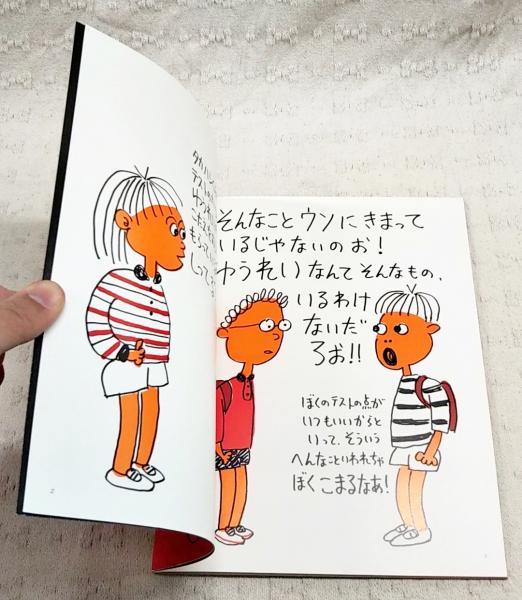 そんなこと ウソ に きまって
いるじゃないの お！
ゆうれい なんて そんなもの、
いるわけ
ないだ
ろお!!
ぼくのテストの点が
いつもいいからと
いって、そういう
へんなこといわれちゃ
ぼく こまるなあ！
2